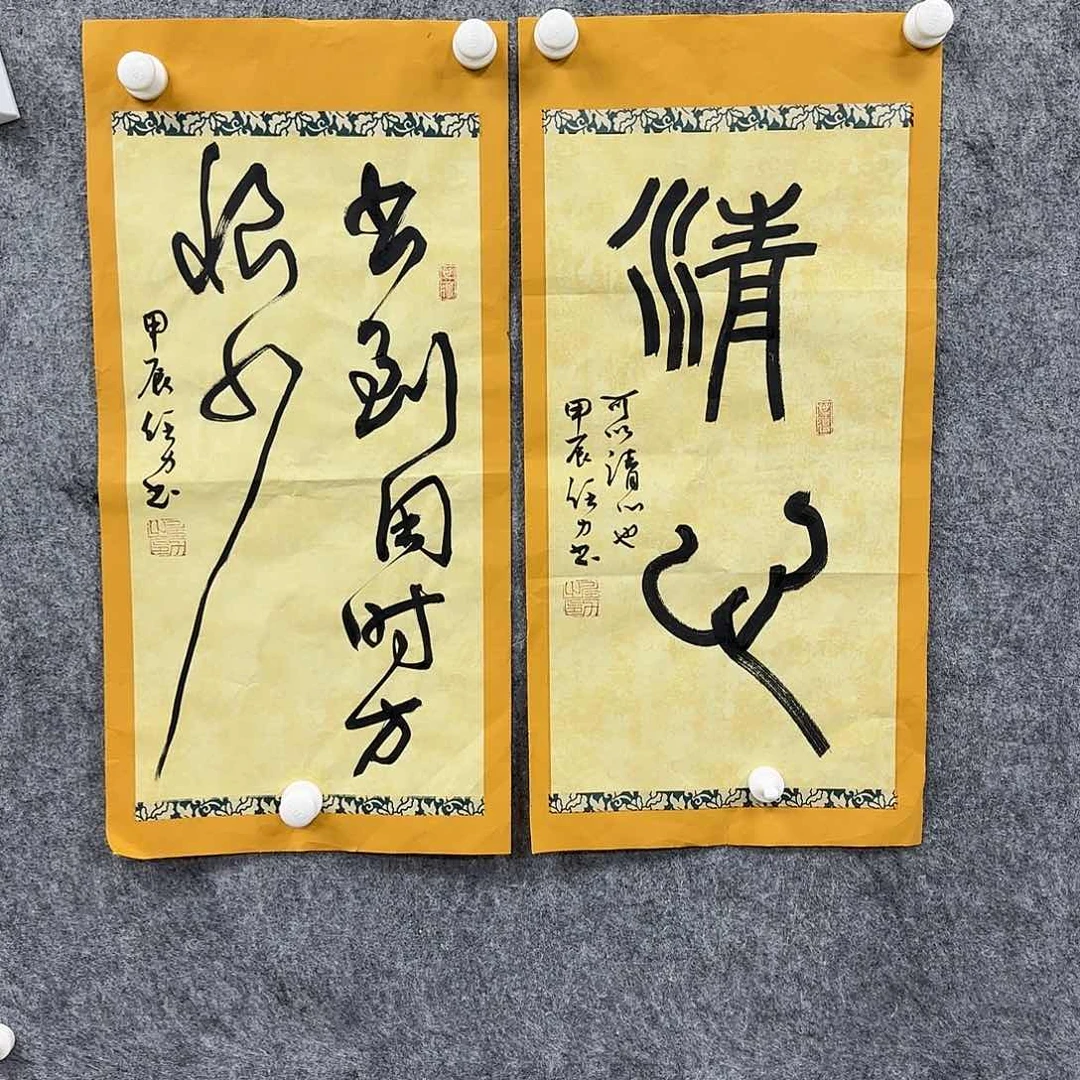 书到用时方
恨少
甲辰任力书
清心
可以清心也
甲辰任力书